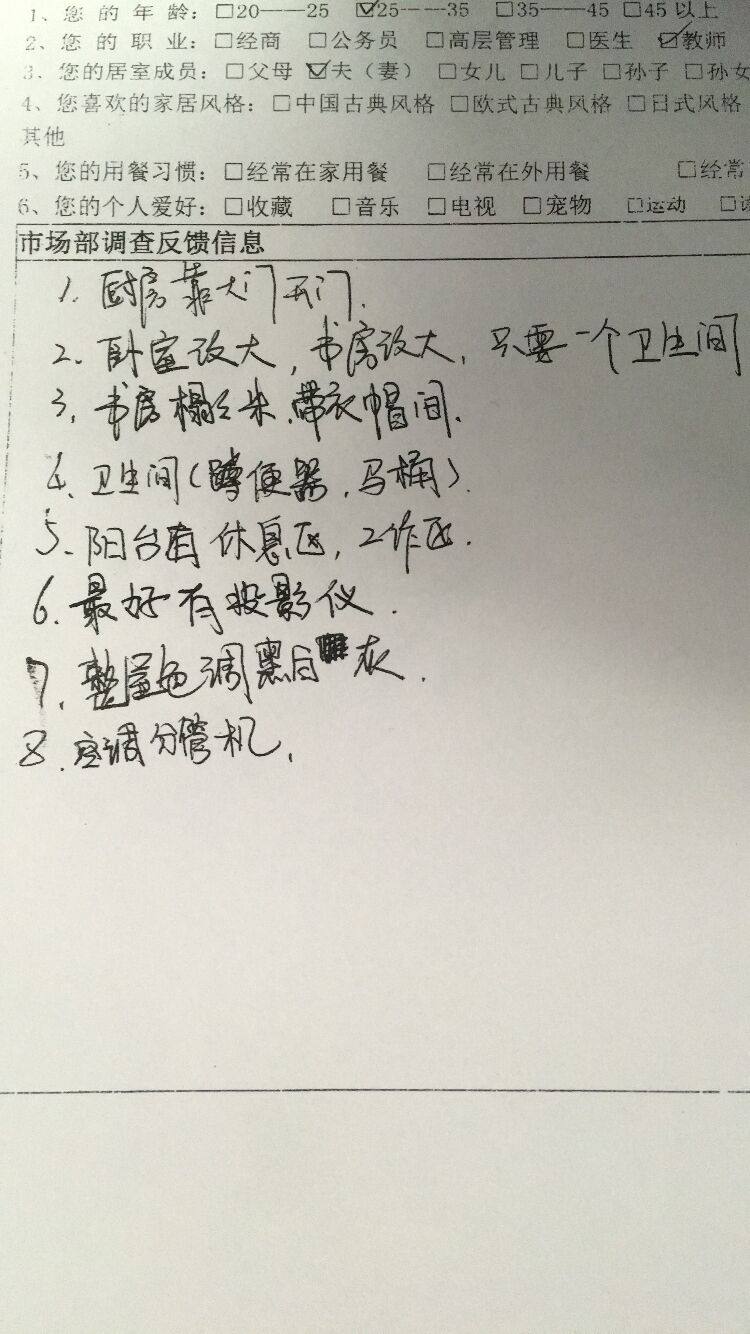 1、您 的 年 龄：□20——25 ☑25----35 □35——45 □45 以上
2、您 的 职 业：□经商 □公务员 □高层管理 □医生 ☑教师
3、您的居室成员：□父母 ☑夫（妻） □女儿 □儿子 □孙子 □孙女
4、您喜欢的家居风格：□中国古典风格 □欧式古典风格 □日式风格
其他
5、您的用餐习惯：□经常在家用餐 □经常在外用餐 □经常
6、您的个人爱好：□收藏 □音乐 □电视 □宠物 □运动 □
市场部调查反馈信息
1. 厨房靠大门开门.
2. 卧室放大, 书房放大, 只要一个卫生间
3. 书房榻榻米.带衣帽间.
4. 卫生间(蹲便器.马桶).
5. 阳台有休息区, 工作区.
6. 最好有投影仪.
7. 整屋色调黑白灰.
8. 空调分管机.